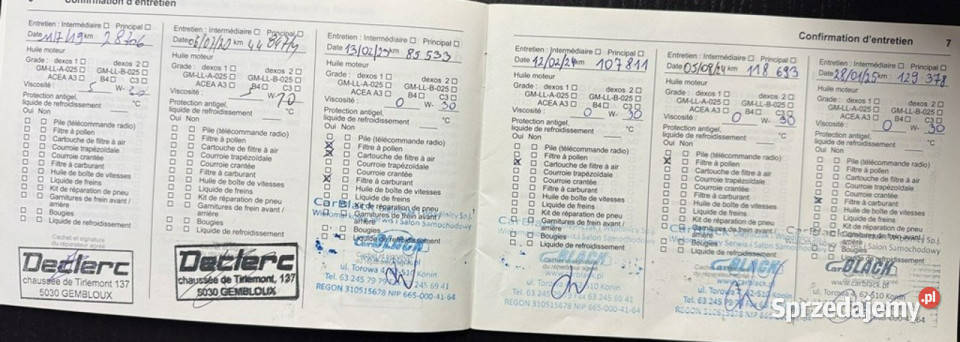 Confirmation d'entretien
Entretien : Intermédiaire Principal
Date 11/7/19 km 28706
Huile moteur
Grade : dexos 1 dexos 2
GM-LL-A-025 GM-LL-B-025
ACEA A3 B4 C3
Viscosité : 5 W- 30
Protection antigel,
liquide de refroidissement °C
Oui Non
Pile (télécommande radio)
Filtre à pollen
Cartouche de filtre à air
Courroie trapézoïdale
Courroie crantée
Filtre à carburant
Huile de boîte de vitesses
Liquide de freins
Kit de réparation de pneu
Garnitures de frein avant /
arrière
Bougies
Liquide de refroidissement
Cachet et signature
du réparateur agréé
Declerc
chaussée de Tirlemont, 137
5030 GEMBLOUX
Entretien : Intermédiaire Principal
Date 03/02/20 km
Huile moteur
Grade : dexos 1 dexos 2
GM-LL-A-025 GM-LL-B-025
ACEA A3 B4 C3
Viscosité : 5 W-
Protection antigel,
liquide de refroidissement °C
Oui Non
Pile (télécommande radio)
Filtre à pollen
Cartouche de filtre à air
Courroie trapézoïdale
Courroie crantée
Filtre à carburant
Huile de boîte de vitesses
Liquide de freins
Kit de réparation de pneu
Garnitures de frein avant /
arrière
Bougies
Liquide de refroidissement
Declerc
chaussée de Tirlemont, 137
5030 GEMBLOUX
Entretien : Intermédiaire Principal
Date 13/02/23 km 85 533
Huile moteur
Grade : dexos 1 dexos 2
GM-LL-A-025 GM-LL-B-025
ACEA A3 B4 C3
Viscosité : 0 W- 30
Protection antigel,
liquide de refroidissement °C
Oui Non
Pile (télécommande radio)
Filtre à pollen
Cartouche de filtre à air
Courroie trapézoïdale
Courroie crantée
Filtre à carburant
Huile de boîte de vitesses
Liquide de freins
Kit de réparation de pneu
Garnitures de frein avant /
arrière
Bougies
Liquide de refroidissement
CarBlack
Serwis i Salon Samochodowy
ul. Torowa Konin
Tel. 63 245 79 79 Fax 63 245 69 41
REGON 310515678 NIP 665-000-41-64
Confirmation d'entretien 7
Entretien : Intermédiaire Principal
Date 12/02/24 km 107811
Huile moteur
Grade : dexos 1 dexos 2
GM-LL-A-025 GM-LL-B-025
ACEA A3 B4 C3
Viscosité : 0 W- 30
Protection antigel,
liquide de refroidissement °C
Oui Non
Pile (télécommande radio)
Filtre à pollen
Cartouche de filtre à air
Courroie trapézoïdale
Courroie crantée
Filtre à carburant
Huile de boîte de vitesses
Liquide de freins
Kit de réparation de pneu
Garnitures de frein avant /
arrière
Bougies
Liquide de refroidissement
Entretien : Intermédiaire Principal
Date 05/09/24 km 118 693
Huile moteur
Grade : dexos 1 dexos 2
GM-LL-A-025 GM-LL-B-025
ACEA A3 B4 C3
Viscosité : 0 W- 30
Protection antigel,
liquide de refroidissement °C
Oui Non
Pile (télécommande radio)
Filtre à pollen
Cartouche de filtre à air
Courroie trapézoïdale
Courroie crantée
Filtre à carburant
Huile de boîte de vitesses
Liquide de freins
Kit de réparation de pneu
Garnitures de frein avant /
arrière
Bougies
Liquide de refroidissement
BLACK
www.carblack.pl
Entretien : Intermédiaire Principal
Date 28/01/25 km 129 378
Huile moteur
Grade : dexos 1 dexos 2
GM-LL-A-025 GM-LL-B-025
ACEA A3 B4 C3
Viscosité : 0 W- 30
Protection antigel,
liquide de refroidissement °C
Oui Non
Pile (télécommande radio)
Filtre à pollen
Cartouche de filtre à air
Courroie trapézoïdale
Courroie crantée
Filtre à carburant
Huile de boîte de vitesses
Liquide de freins
Kit de réparation de pneu
Garnitures de frein avant /
arrière
Bougies
Liquide de refroidissement
CarBLACK
Sprzedajemy.pl